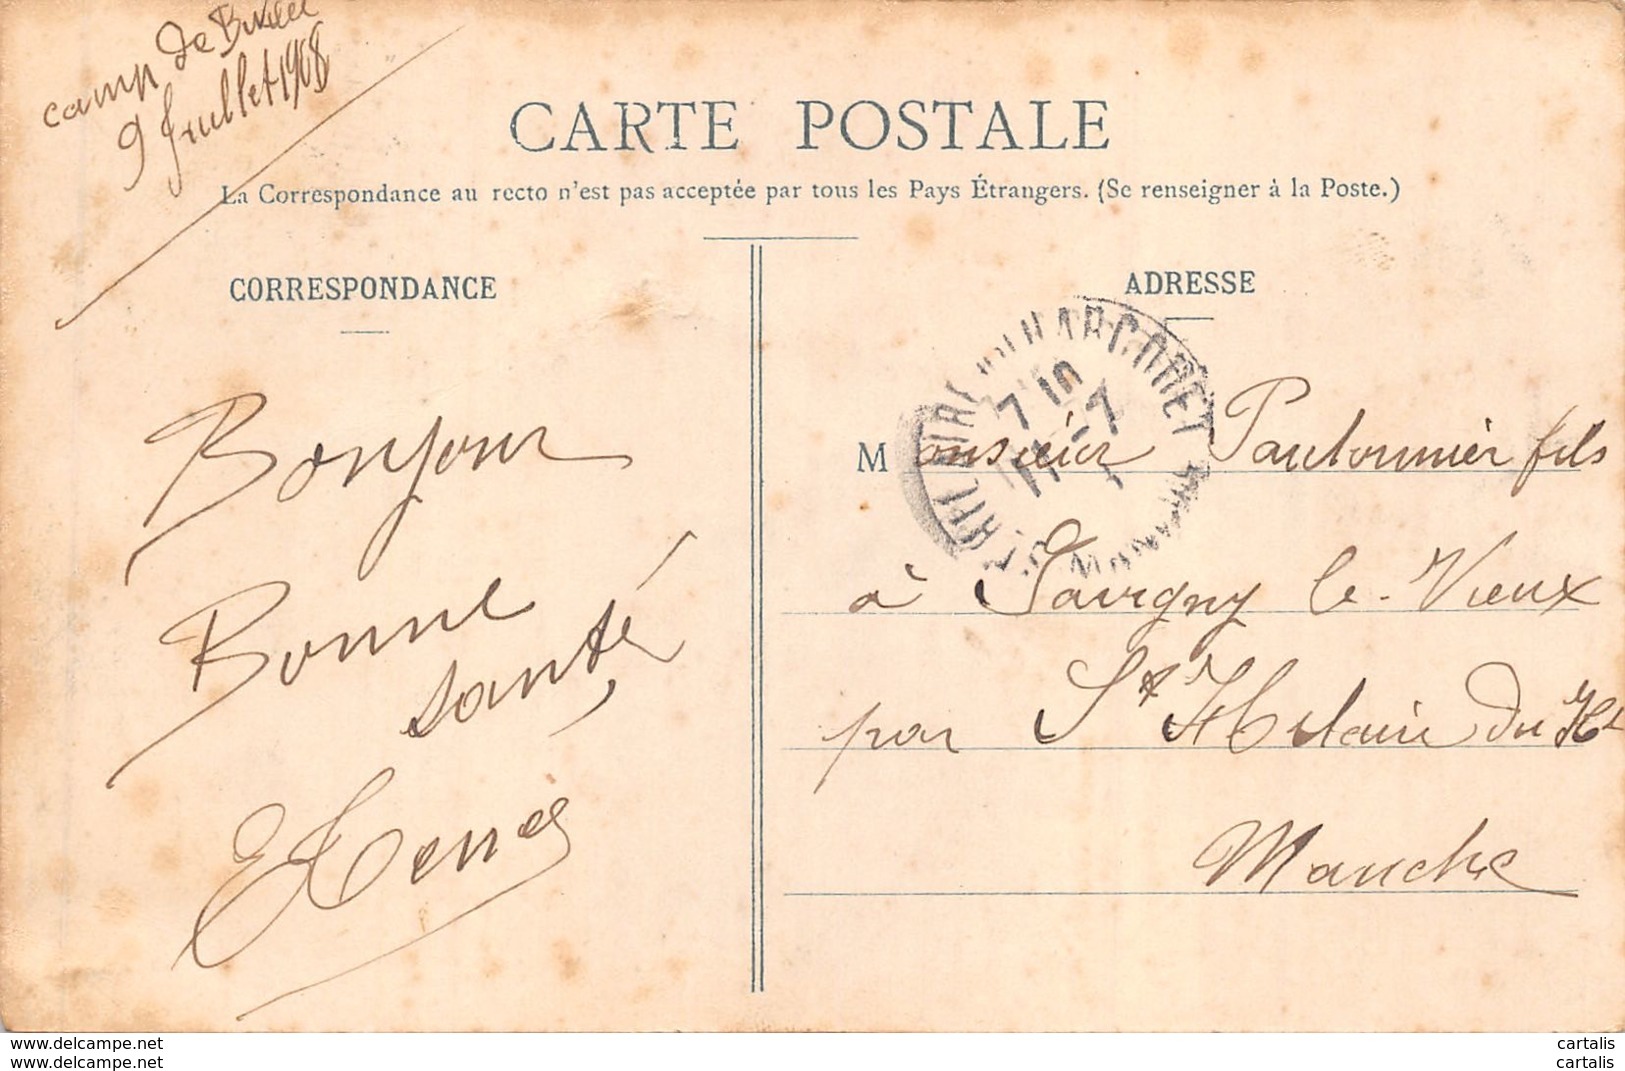 camp de
9 Juillet 1908
CARTE POSTALE
La Correspondance au recto n'est pas acceptée par tous les Pays Étrangers. (Se renseigner à la Poste.)
CORRESPONDANCE
ADRESSE
Bonjour
Bonne
santé
Monsieur Pautonnier fils
à Savigny le-Vieux
par St Hilaire du Ht
Manche
https://www.delcampe.net
https://www.delcampe.net
cartalis
cartalis